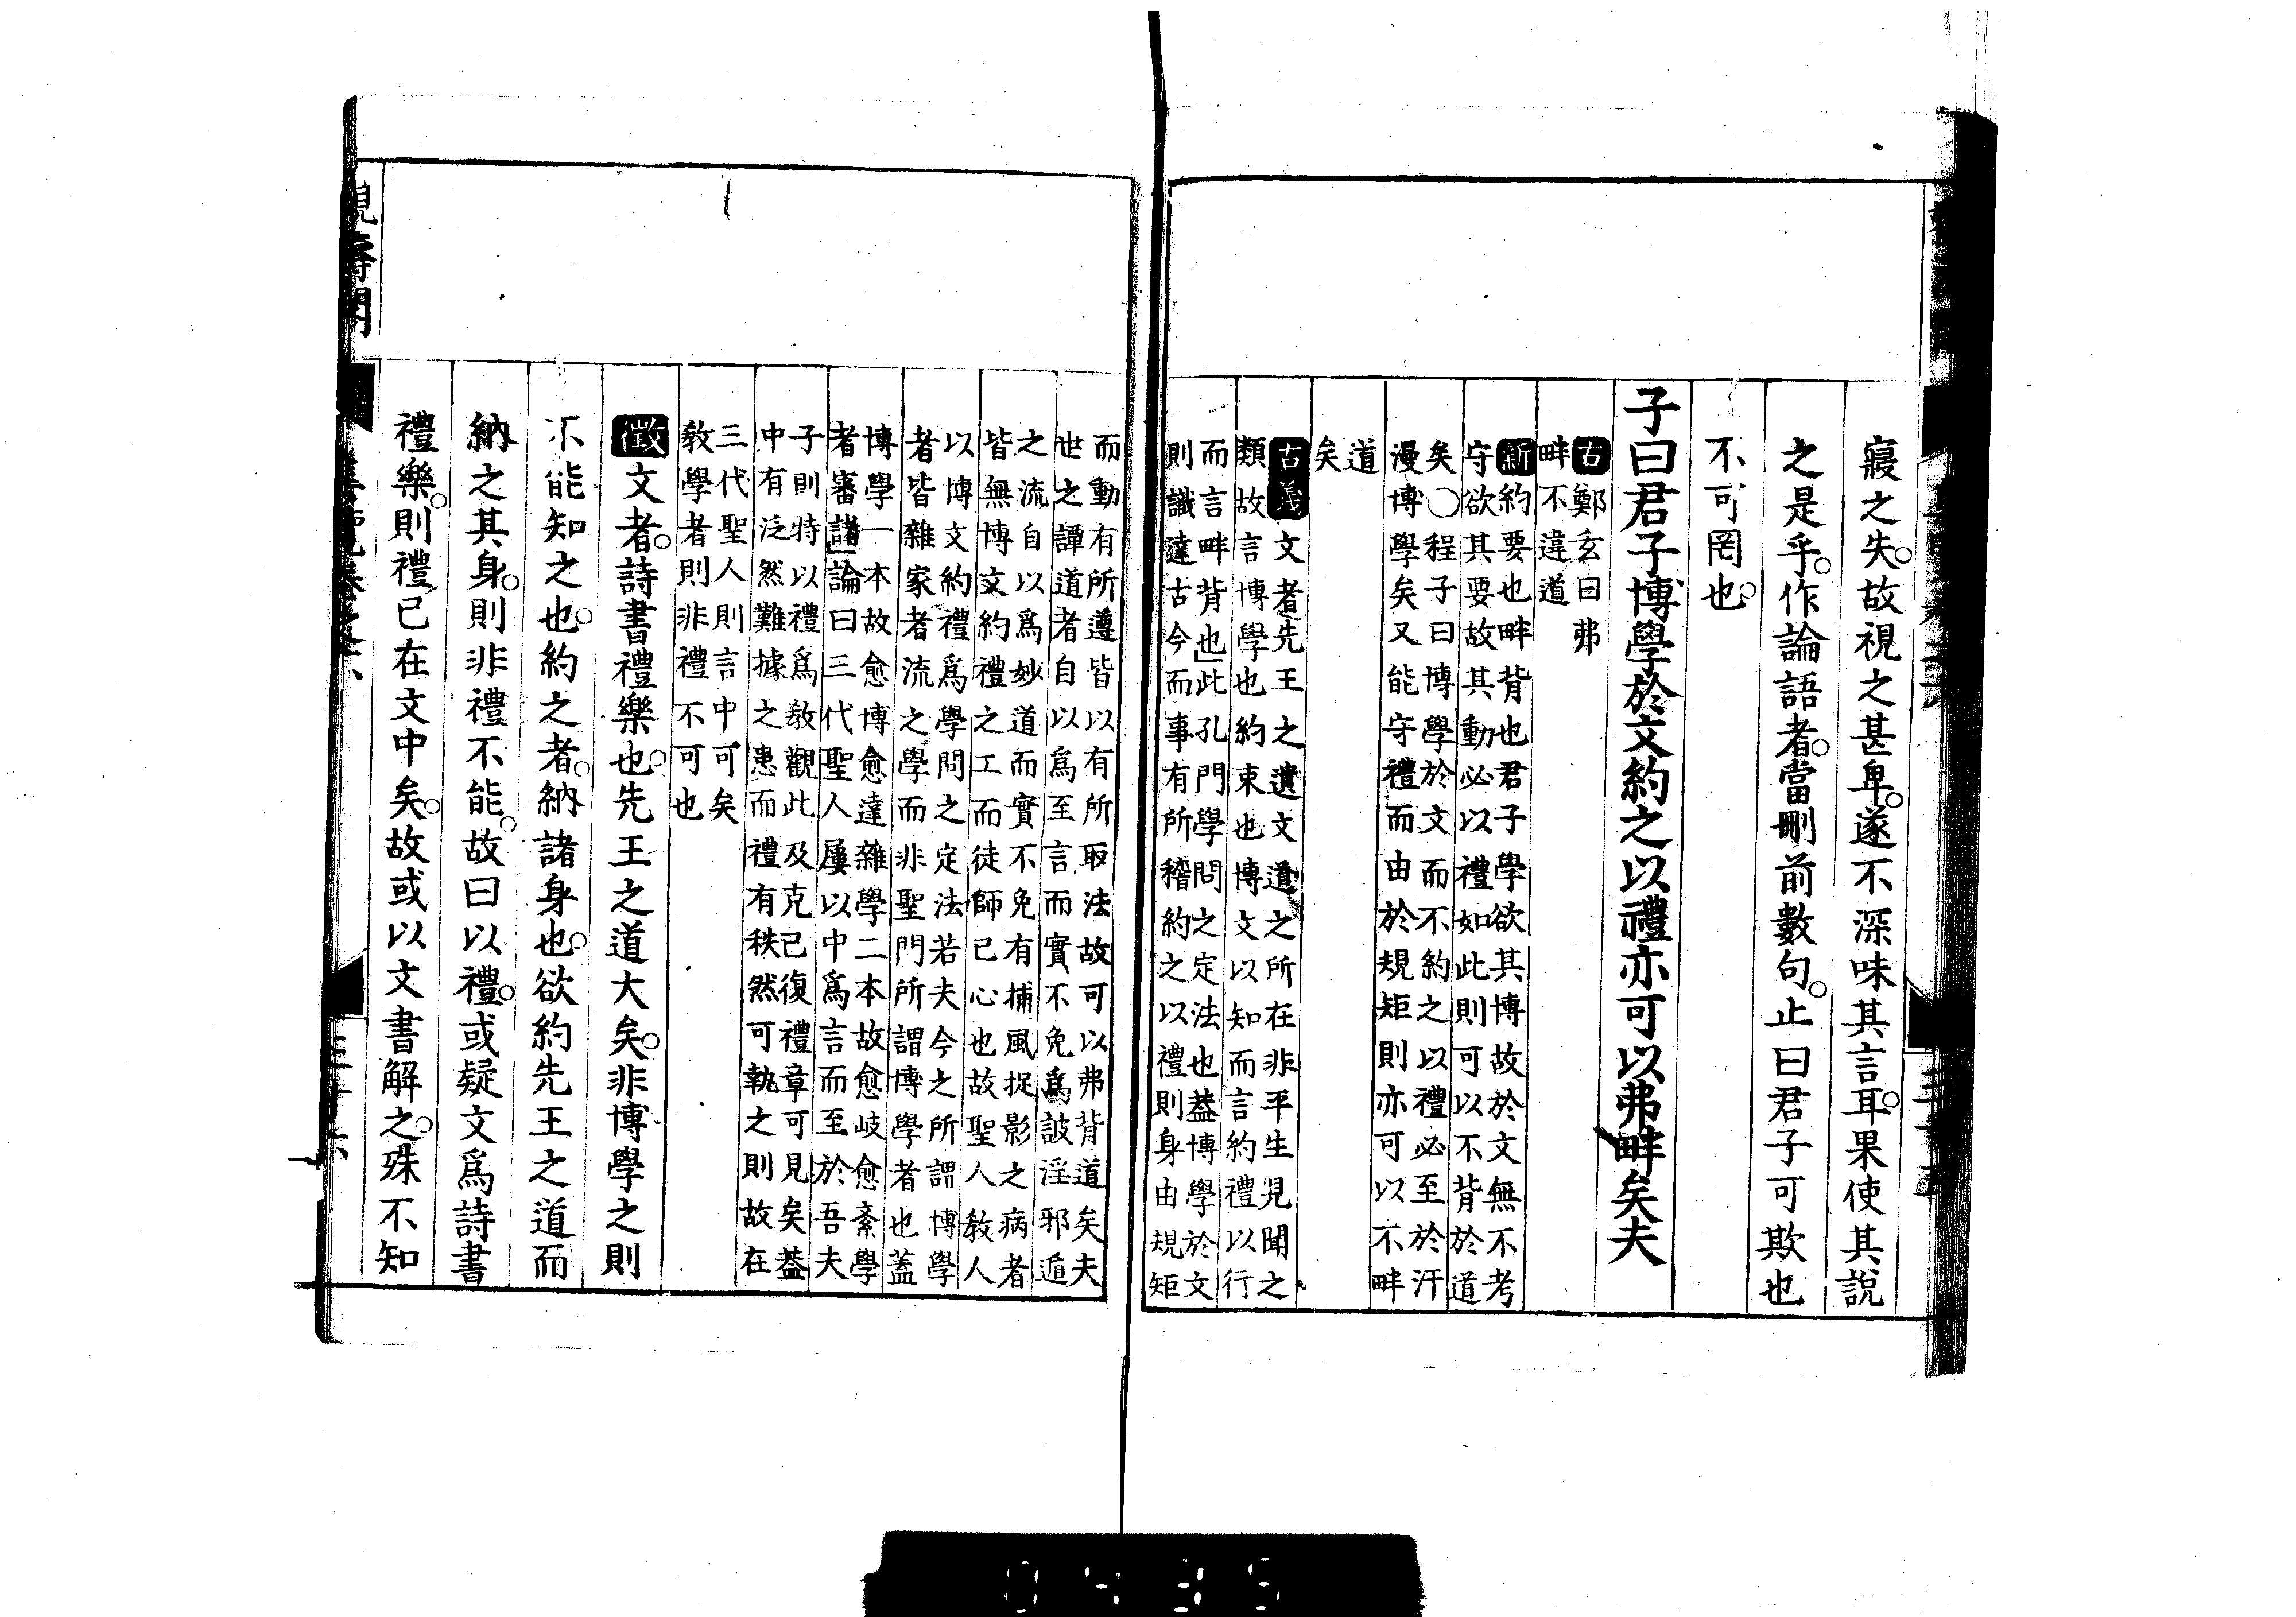 寢之失故視之甚卑遂不深味其言耳果使其說
之是乎作論語者當刪前數句止曰君子可欺也
不可罔也
子曰君子博學於文約之以禮亦可以弗畔矣夫
古鄭玄曰弗
畔不違道
新約要也畔背也君子學欲其博故於文無不考
守欲其要故其動必以禮如此則可以不背於道
矣○程子曰博學於文而不約之以禮必至於汗
漫博學矣又能守禮而由於規矩則亦可以不畔
道
矣
古義文者先王之遺文道之所在非平生見聞之
類故言博學也約束也博文以知而言約禮以行
而言畔背也」此孔門學問之定法也葢博學於文
則識達古今而事有所稽約之以禮則身由規矩
而動有所遵皆以有所取法故可以弗背道矣夫
世之譚道者自以爲至言而實不免爲詖淫邪遁
之流自以爲妙道而實不免有捕風捉影之病者
皆無博文約禮之工而徒師己心也故聖人敎人
以博文約禮爲學問之定法若夫今之所謂博學
者皆雜家者流之學而非聖門所謂博學者也蓋
博學一本故愈博愈達雜學二本故愈岐愈紊學
者審諸」論曰三代聖人屢以中爲言而至於吾夫
子則特以禮爲敎觀此及克己復禮章可見矣葢
中有泛然難據之患而禮有秩然可執之則故在
三代聖人則言中可矣
敎學者則非禮不可也
徵文者詩書禮樂也先王之道大矣非博學之則
不能知之也約之者納諸身也欲約先王之道而
納之其身則非禮不能故曰以禮或疑文爲詩書
禮樂則禮已在文中矣故或以文書解之殊不知
0435